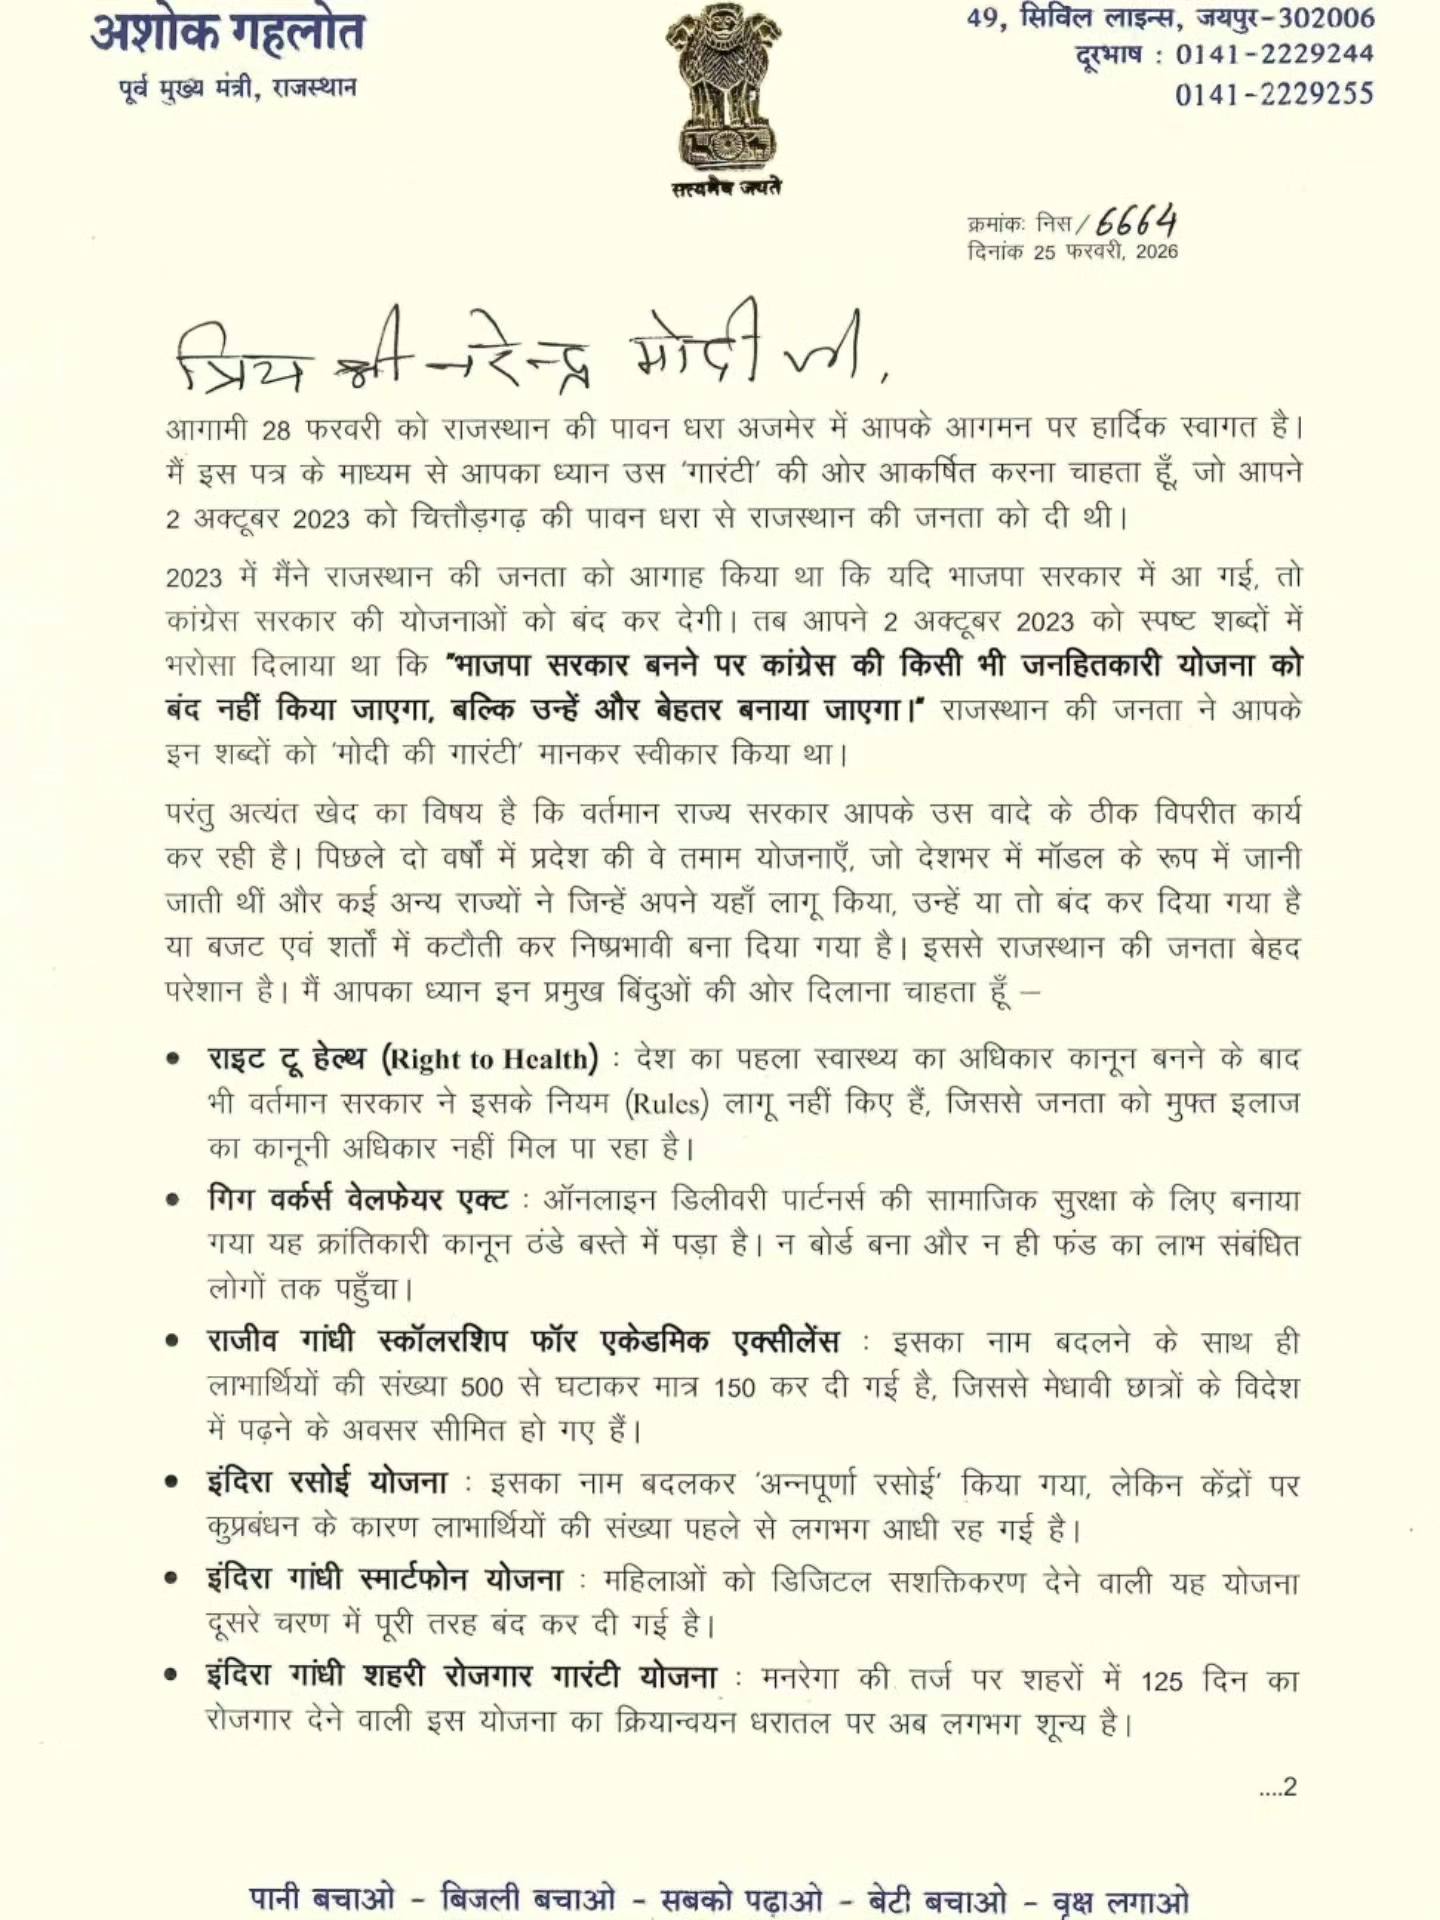 अशोक गहलोत
पूर्व मुख्य मंत्री, राजस्थान
सत्यमेव जयते
49, सिविल लाइन्स, जयपुर-302006
दूरभाष : 0141-2229244
0141-2229255
क्रमांकः निस/6664
दिनांक 25 फरवरी, 2026
प्रिय श्री नरेन्द्र मोदी जी,
आगामी 28 फरवरी को राजस्थान की पावन धरा अजमेर में आपके आगमन पर हार्दिक स्वागत है।
मैं इस पत्र के माध्यम से आपका ध्यान उस 'गारंटी' की ओर आकर्षित करना चाहता हूँ, जो आपने
2 अक्टूबर 2023 को चित्तौड़गढ़ की पावन धरा से राजस्थान की जनता को दी थी।
2023 में मैंने राजस्थान की जनता को आगाह किया था कि यदि भाजपा सरकार में आ गई, तो
कांग्रेस सरकार की योजनाओं को बंद कर देगी। तब आपने 2 अक्टूबर 2023 को स्पष्ट शब्दों में
भरोसा दिलाया था कि "भाजपा सरकार बनने पर कांग्रेस की किसी भी जनहितकारी योजना को
बंद नहीं किया जाएगा, बल्कि उन्हें और बेहतर बनाया जाएगा।" राजस्थान की जनता ने आपके
इन शब्दों को 'मोदी की गारंटी' मानकर स्वीकार किया था।
परंतु अत्यंत खेद का विषय है कि वर्तमान राज्य सरकार आपके उस वादे के ठीक विपरीत कार्य
कर रही है। पिछले दो वर्षों में प्रदेश की वे तमाम योजनाएँ, जो देशभर में मॉडल के रूप में जानी
जाती थीं और कई अन्य राज्यों ने जिन्हें अपने यहाँ लागू किया, उन्हें या तो बंद कर दिया गया है
या बजट एवं शर्तों में कटौती कर निष्प्रभावी बना दिया गया है। इससे राजस्थान की जनता बेहद
परेशान है। मैं आपका ध्यान इन प्रमुख बिंदुओं की ओर दिलाना चाहता हूँ –
• राइट टू हेल्थ (Right to Health) : देश का पहला स्वास्थ्य का अधिकार कानून बनने के बाद
भी वर्तमान सरकार ने इसके नियम (Rules) लागू नहीं किए हैं, जिससे जनता को मुफ्त इलाज
का कानूनी अधिकार नहीं मिल पा रहा है।
• गिग वर्कर्स वेलफेयर एक्ट : ऑनलाइन डिलीवरी पार्टनर्स की सामाजिक सुरक्षा के लिए बनाया
गया यह क्रांतिकारी कानून ठंडे बस्ते में पड़ा है। न बोर्ड बना और न ही फंड का लाभ संबंधित
लोगों तक पहुँचा।
• राजीव गांधी स्कॉलरशिप फॉर एकेडमिक एक्सीलेंस : इसका नाम बदलने के साथ ही
लाभार्थियों की संख्या 500 से घटाकर मात्र 150 कर दी गई है, जिससे मेधावी छात्रों के विदेश
में पढ़ने के अवसर सीमित हो गए हैं।
• इंदिरा रसोई योजना : इसका नाम बदलकर 'अन्नपूर्णा रसोई' किया गया, लेकिन केंद्रों पर
कुप्रबंधन के कारण लाभार्थियों की संख्या पहले से लगभग आधी रह गई है।
• इंदिरा गांधी स्मार्टफोन योजना : महिलाओं को डिजिटल सशक्तिकरण देने वाली यह योजना
दूसरे चरण में पूरी तरह बंद कर दी गई है।
• इंदिरा गांधी शहरी रोजगार गारंटी योजना : मनरेगा की तर्ज पर शहरों में 125 दिन का
रोजगार देने वाली इस योजना का क्रियान्वयन धरातल पर अब लगभग शून्य है।
....2
पानी बचाओ - बिजली बचाओ - सबको पढ़ाओ - बेटी बचाओ - वृक्ष लगाओ